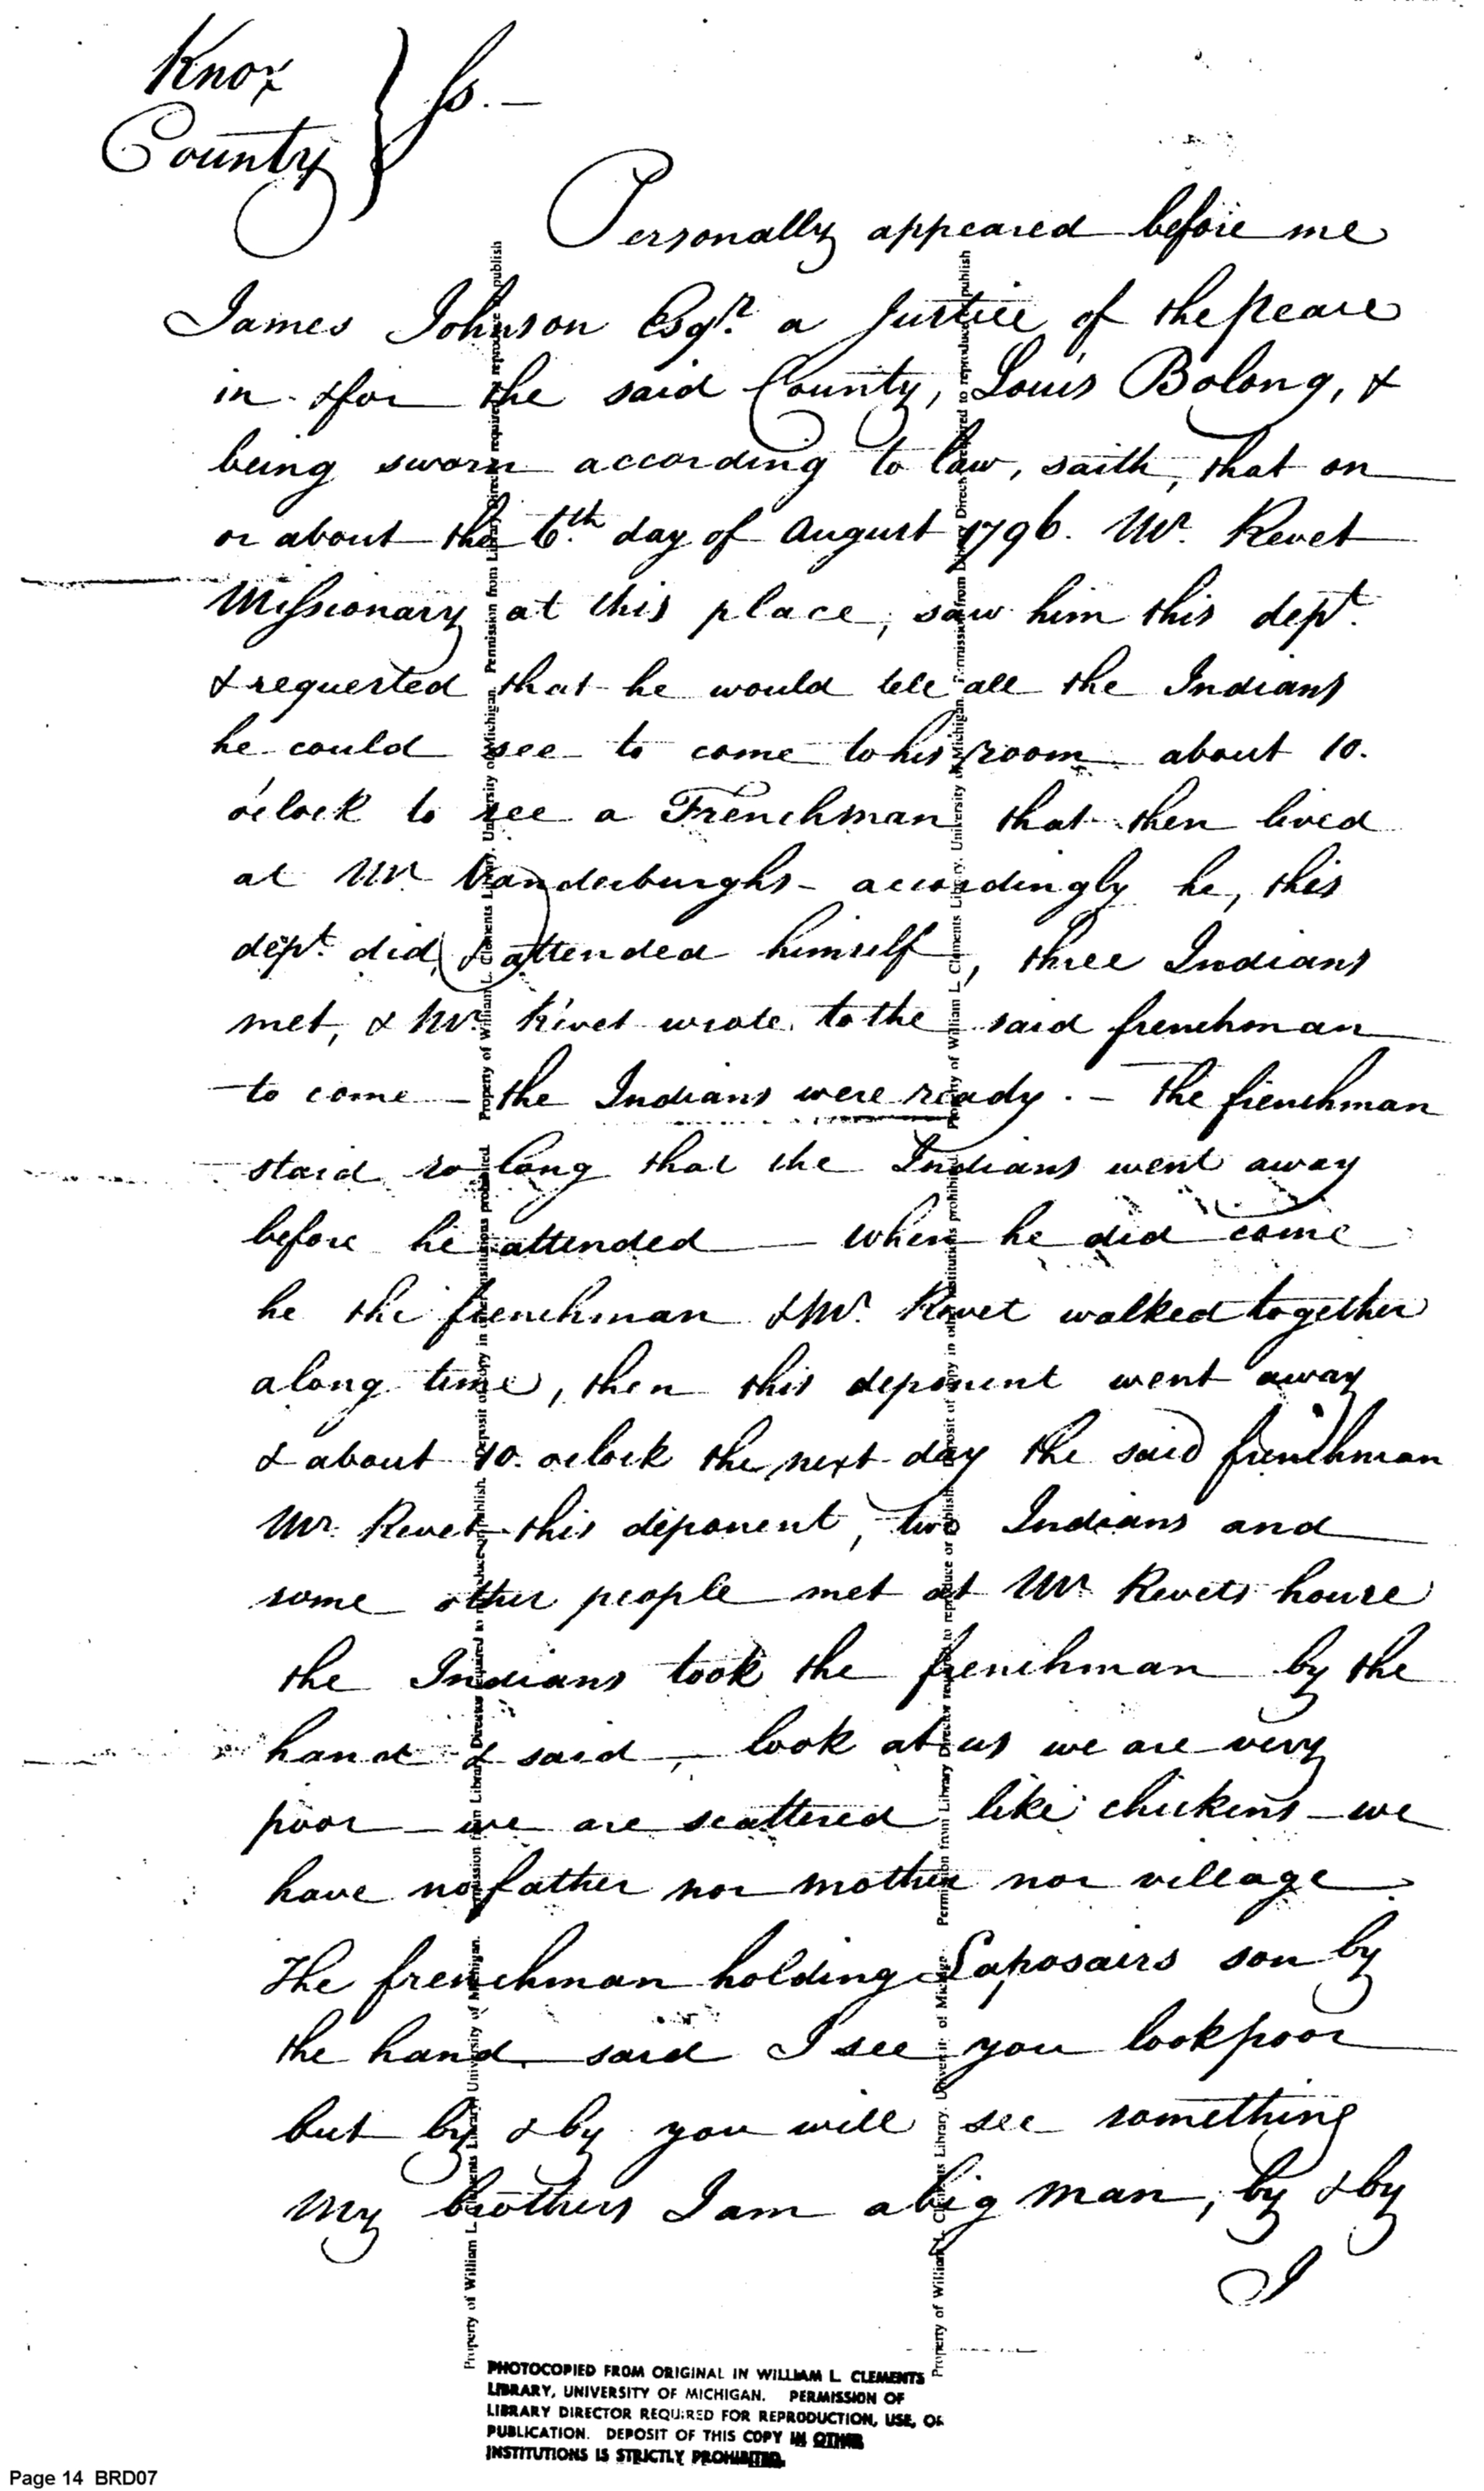 Knox
County } ss. —
Personally appeared before me
James Johnson Esqr. a Justice of the peace
in & for the said County, Louis Bolong, &
being sworn according to law, saith, that on
or about the 6th. day of August 1796. Mr. Revet
Missionary at this place, saw him this dept.
& requested that he would tell all the Indians
he could see to come to his room about 10.
o'clock to see a Frenchman that then lived
at Mr. Vanderburghs - accordingly he, this
dept. did, & attended himself, three Indians
met, & Mr. Rivet wrote to the said frenchman
to come — the Indians were ready. — The frenchman
staid so long that the Indians went away
before he attended — when he did come
he the frenchman & Mr. Rivet walked together
along time, then this deponent went away
& about 10. oclock the next day the said frenchman
Mr. Revet this deponent, two Indians and
some other people met at Mr. Revets house
the Indians took the frenchman by the
hand & said, — look at us we are very
poor — we are scattered like chickens — we
have no father nor mother nor village.
The frenchman holding Laposairs son by
the hand said I see you look poor
but by & by you will see something
My brothers I am a big man, by & by
I
Property of William L. Clements Library, University of Michigan. Permission from Library Director required to reproduce or publish. Deposit of copy in other institutions prohibited.
Property of William L. Clements Library, University of Michigan. Permission from Library Director required to reproduce or publish
Property of William L. Clements Library, University of Michigan. Permission from Library Director required to reproduce or publish. Deposit of copy in other institutions prohibited.
Property of William L. Clements Library, University of Michigan. Permission from Library Director required to reproduce or publish
PHOTOCOPIED FROM ORIGINAL IN WILLIAM L. CLEMENTS
LIBRARY, UNIVERSITY OF MICHIGAN. PERMISSION OF
LIBRARY DIRECTOR REQUIRED FOR REPRODUCTION, USE, OR
PUBLICATION. DEPOSIT OF THIS COPY IN OTHER
INSTITUTIONS IS STRICTLY PROHIBITED.
Page 14 BRD07